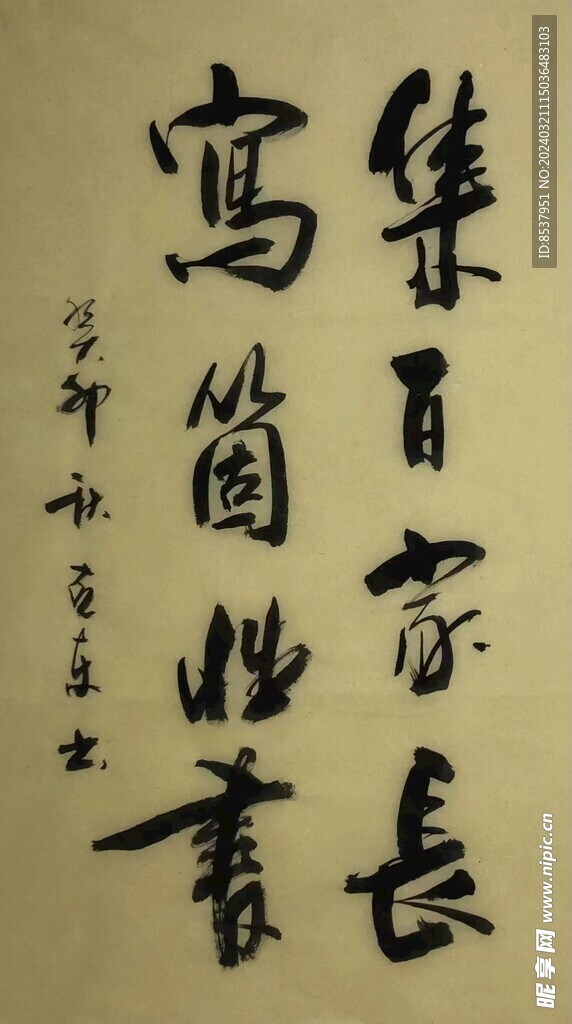 集百家長
寫箇性書
癸卯秋東书
ID:8537951 NO:20240321115036483103
昵享网 www.nipic.cn